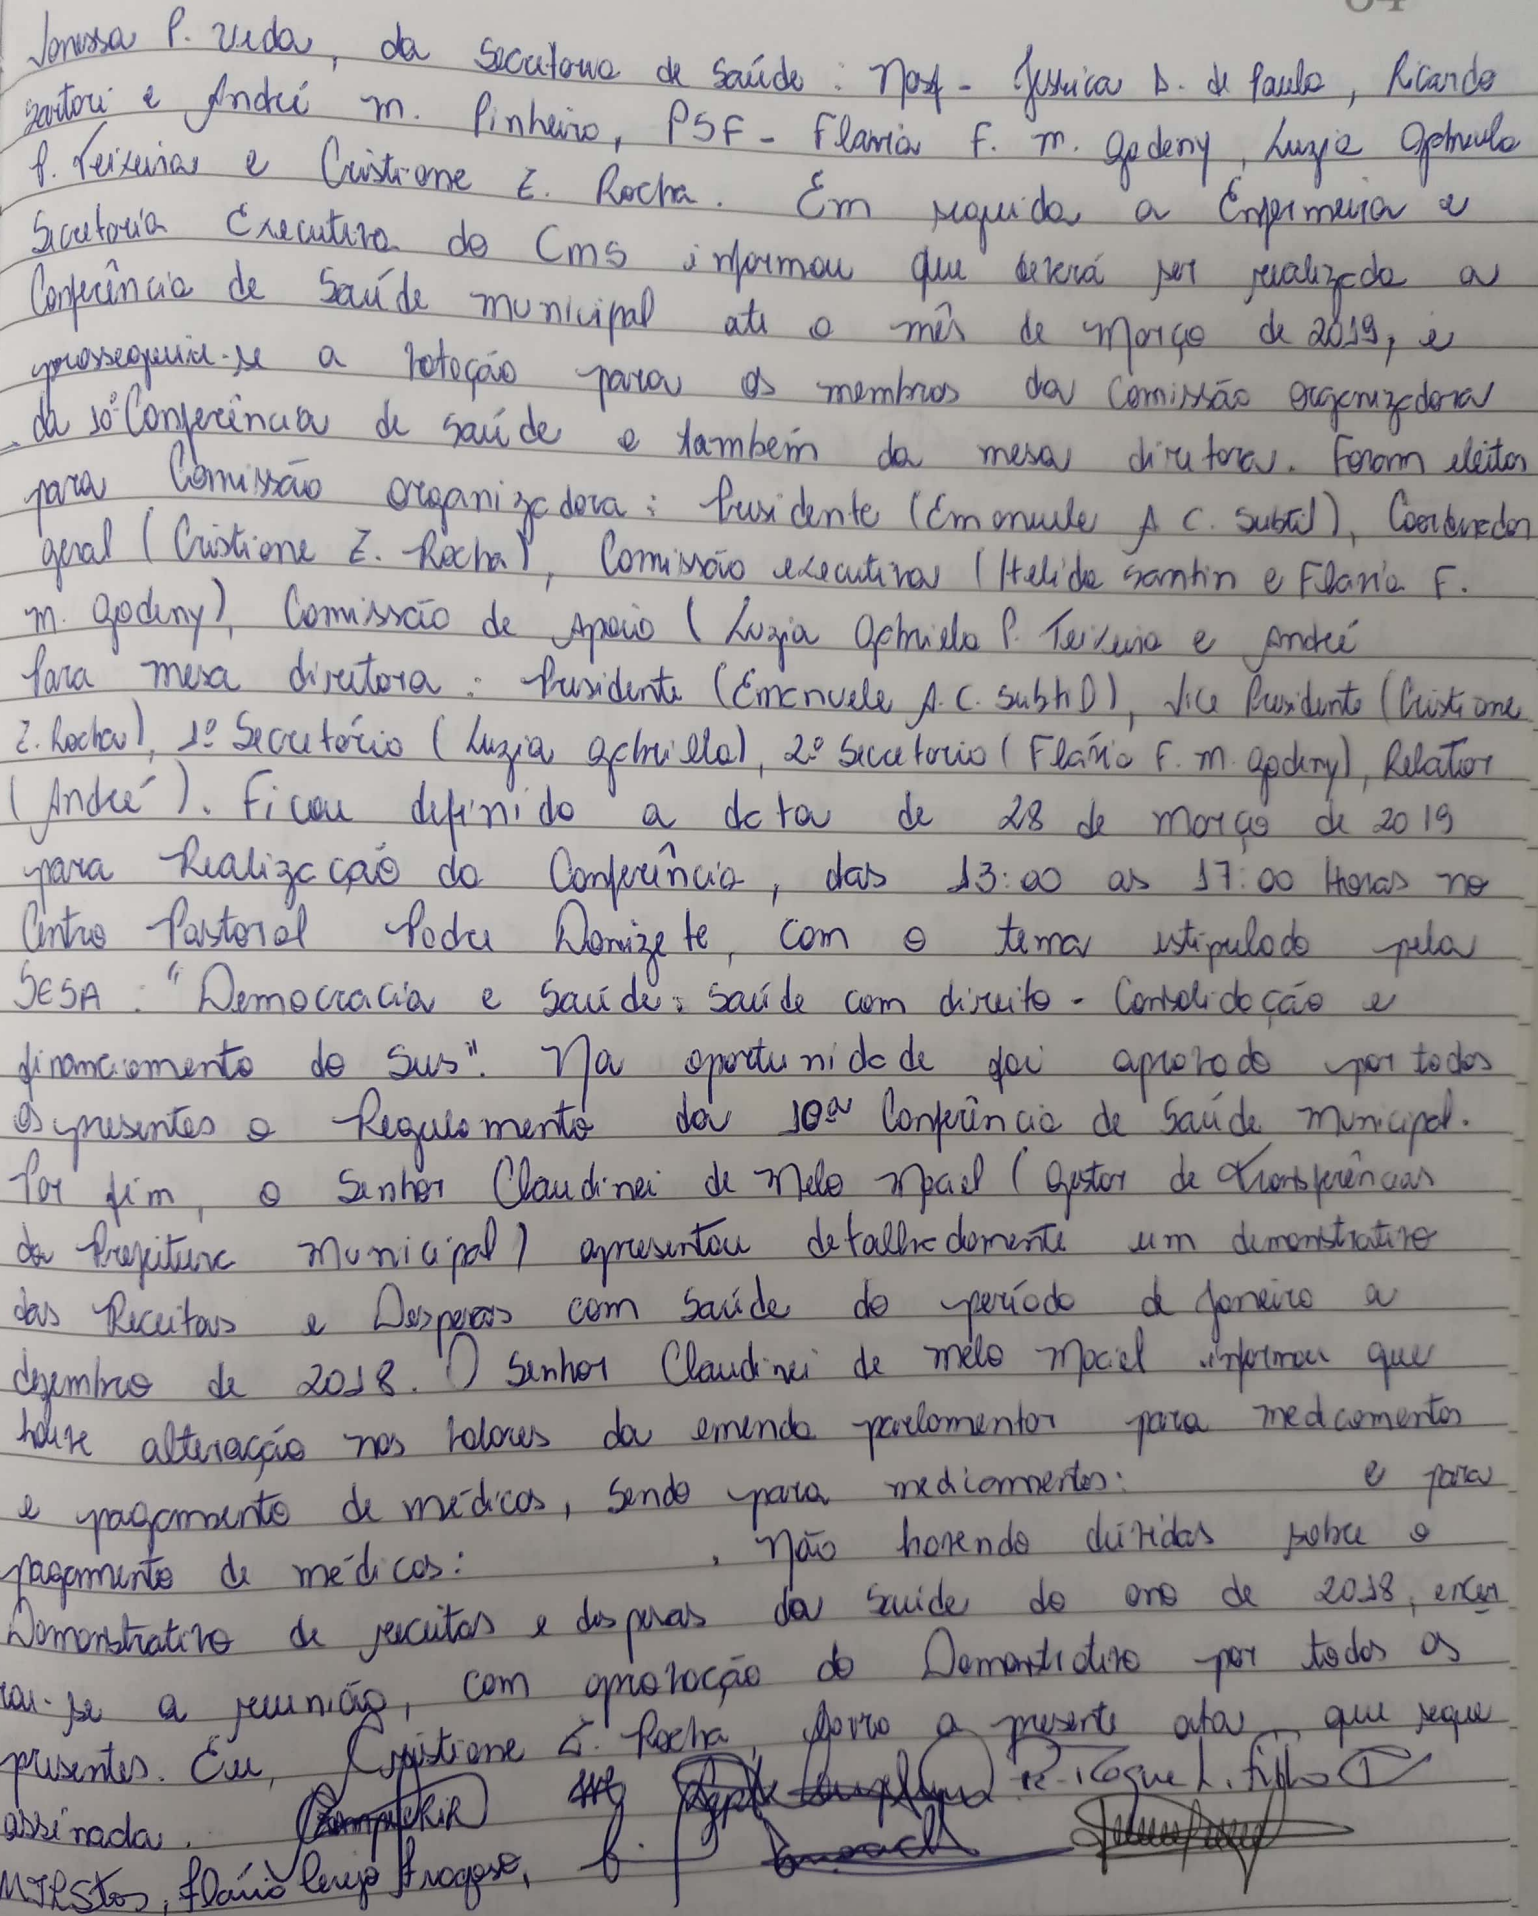 Vanessa P. Veda, da Secretaria de Saúde: Nasf - Jessica D. de Paula, Ricardo
Sartori e André M. Pinheiro, PSF - Flavia F. M. Godeny, Luzia Gabriela
P. Teixeira e Cristiane Z. Rocha. Em seguida a Enfermeira e
Secretaria Executiva do CMS informou que deverá ser realizada a
Conferência de Saúde Municipal até o mês de Março de 2019, e
prosseguiu-se a votação para os membros da Comissão organizadora
da 10ª Conferência de Saúde e também da mesa diretora. Foram eleitos
para Comissão organizadora: Presidente (Emanuele A. C. Subtil), Coordenador
geral (Cristiane Z. Rocha), Comissão executiva (Helida Santin e Flavia F.
M. Godeny), Comissão de Apoio (Luzia Gabriela P. Teixeira e André
Para mesa diretora: Presidente (Emanuele A. C. Subtil), Vice Presidente (Cristiane
Z. Rocha), 1º Secretário (Luzia Gabriella), 2º Secretario (Flávia F. M. Godeny), Relator
(André). Ficou definido a data de 28 de Março de 2019
para Realização da Conferência, das 13:00 as 17:00 Horas no
Centro Pastoral Padre Donizete, com o tema estipulado pela
SESA: "Democracia e Saúde: Saúde com direito - Consolidação e
financiamento do SUS". Na oportunidade foi aprovado por todos
os presentes o Regulamento da 10ª Conferência de Saúde Municipal.
Por fim, o Senhor Claudinei de Melo Maciel (Gestor de Transferências
da Prefeitura Municipal) apresentou detalhadamente um demonstrativo
das Receitas e Despesas com Saúde do período de Janeiro a
dezembro de 2018. O Senhor Claudinei de Melo Maciel informou que
houve alteração nos valores da emenda parlamentar para medicamentos
e pagamento de médicos, sendo para medicamentos: e para
pagamento de médicos: . Não havendo dúvidas sobre o
Demonstrativo de receitas e despesas da Saúde do ano de 2018, encer
rou-se a reunião, com aprovação do Demonstrativo por todos os
presentes. Eu, Cristiane Z. Rocha, lavro a presente ata, que segue
assinada.
Flávio